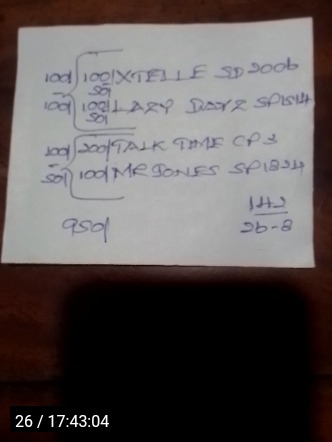 100/ 100/ XTELLE SD 2006
50/
100/ 100/ LAZY DAYZ SP1514
50/
100/ 200/ TALK TIME CP 3
50/ 100/ MR JONES SP1824
142
950/ 26-8
26 / 17:43:04